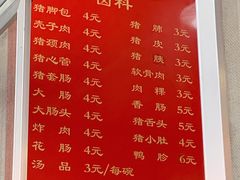 卤料
猪脚包 4元
壳子肉 4元
猪颈肉 4元
猪心管 4元
猪套肠 4元
大肠 4元
大肠头 4元
炸肉 4元
花肠 4元
汤品 3元/每碗
猪肺 3元
猪皮 3元
猪胰 3元
软骨肉 3元
肉粿 3元
香肠 5元
猪舌头 5元
猪小肚 4元
鸭胗 6元